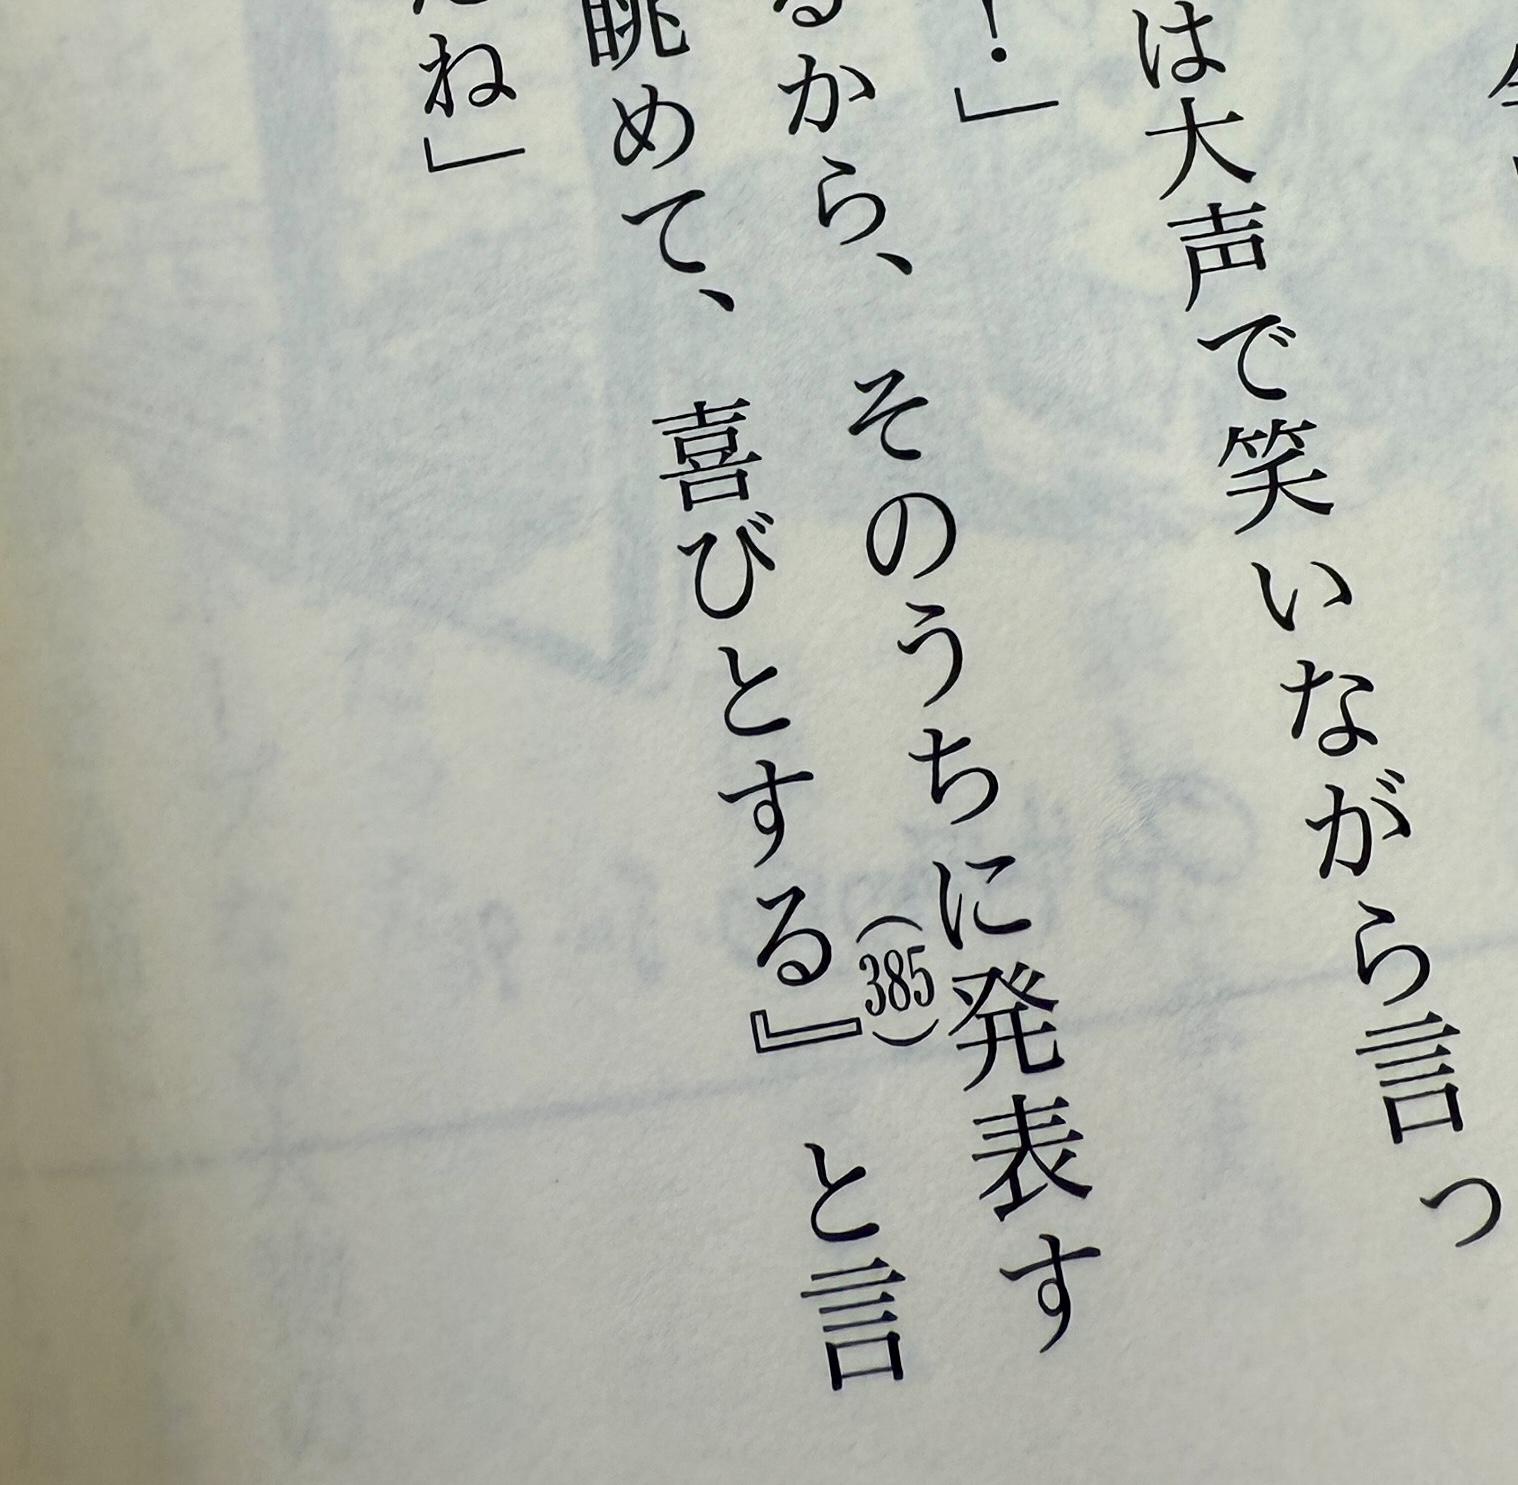 は大声で笑いながら言っ
！」
るから、そのうちに発表す
眺めて、喜びとする』(385)と言
ね」